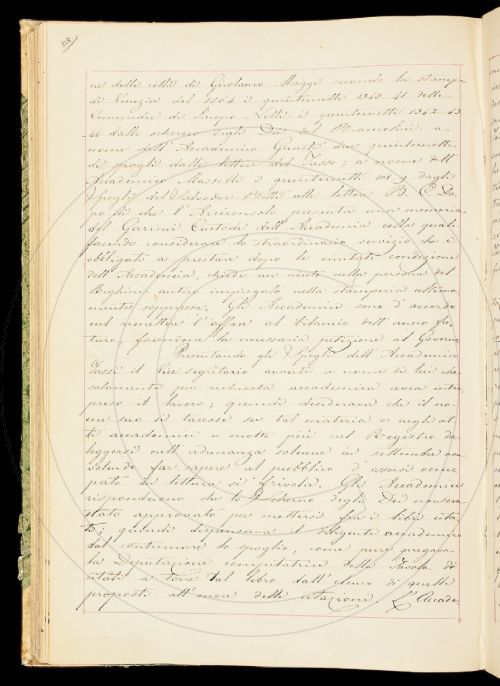 318
ne delle città di Girolamo Maggi secondo la stampa
di Venezia del 1564 i quinternetti 1340-41 delle
Commedie di Jacopo Nelli i quinternetti 1342-43
44 dallo scherno degli Dei del Bracciolini; a
nome dell'Accademico Guasti due quinternetti
di spogli dalle lettere del Tasso; a nome dell'
Accademico Masselli i quinternetti 108 9 dagli
Spogli del Salvador Betti alle lettere B. C. Do
po di che l'Arciconsolo presenta una memoria
del Garinei Custode dell'Accademia colla quale
facendo considerare lo straordinario servizio che è
obbligato a prestare dopo le mutate condizioni
dell'Accademia, chiede un aiuto nella persona del
antico impiegato nella stamperia ultima
mente soppressa. Gli Accademici sono d'accordo
nel rimettere l'affare al bilancio dell'anno fu
turo, facendone la necessaria petizione al Governo
Presentando gli Spogli dell'Accademico
Tassi il Vice segretario avverte a nome di lui che
solamente per richiesta accademica avea intra
preso il lavoro; quindi desiderava che il no
me suo si tacesse su tal materia e negli at
ti accademici e molto più nel Registro da
leggersi nell'adunanza solenne in settembre non
volendo far sapere al pubblico d'essersi occu
pato in lettura sì frivola. Gli Accademici
risposero che lo Scherno degli Dei non era
stato approvato per mettersi fra i libri cita
ti; quindi dispensava il diligente accademico
dal continuare lo spoglio, come pure pregava
la Deputazione compilatrice della Tavola dei
citati a torre tal libro dall'elenco di quelli
proposti all'onore delle citazioni. L'Accade